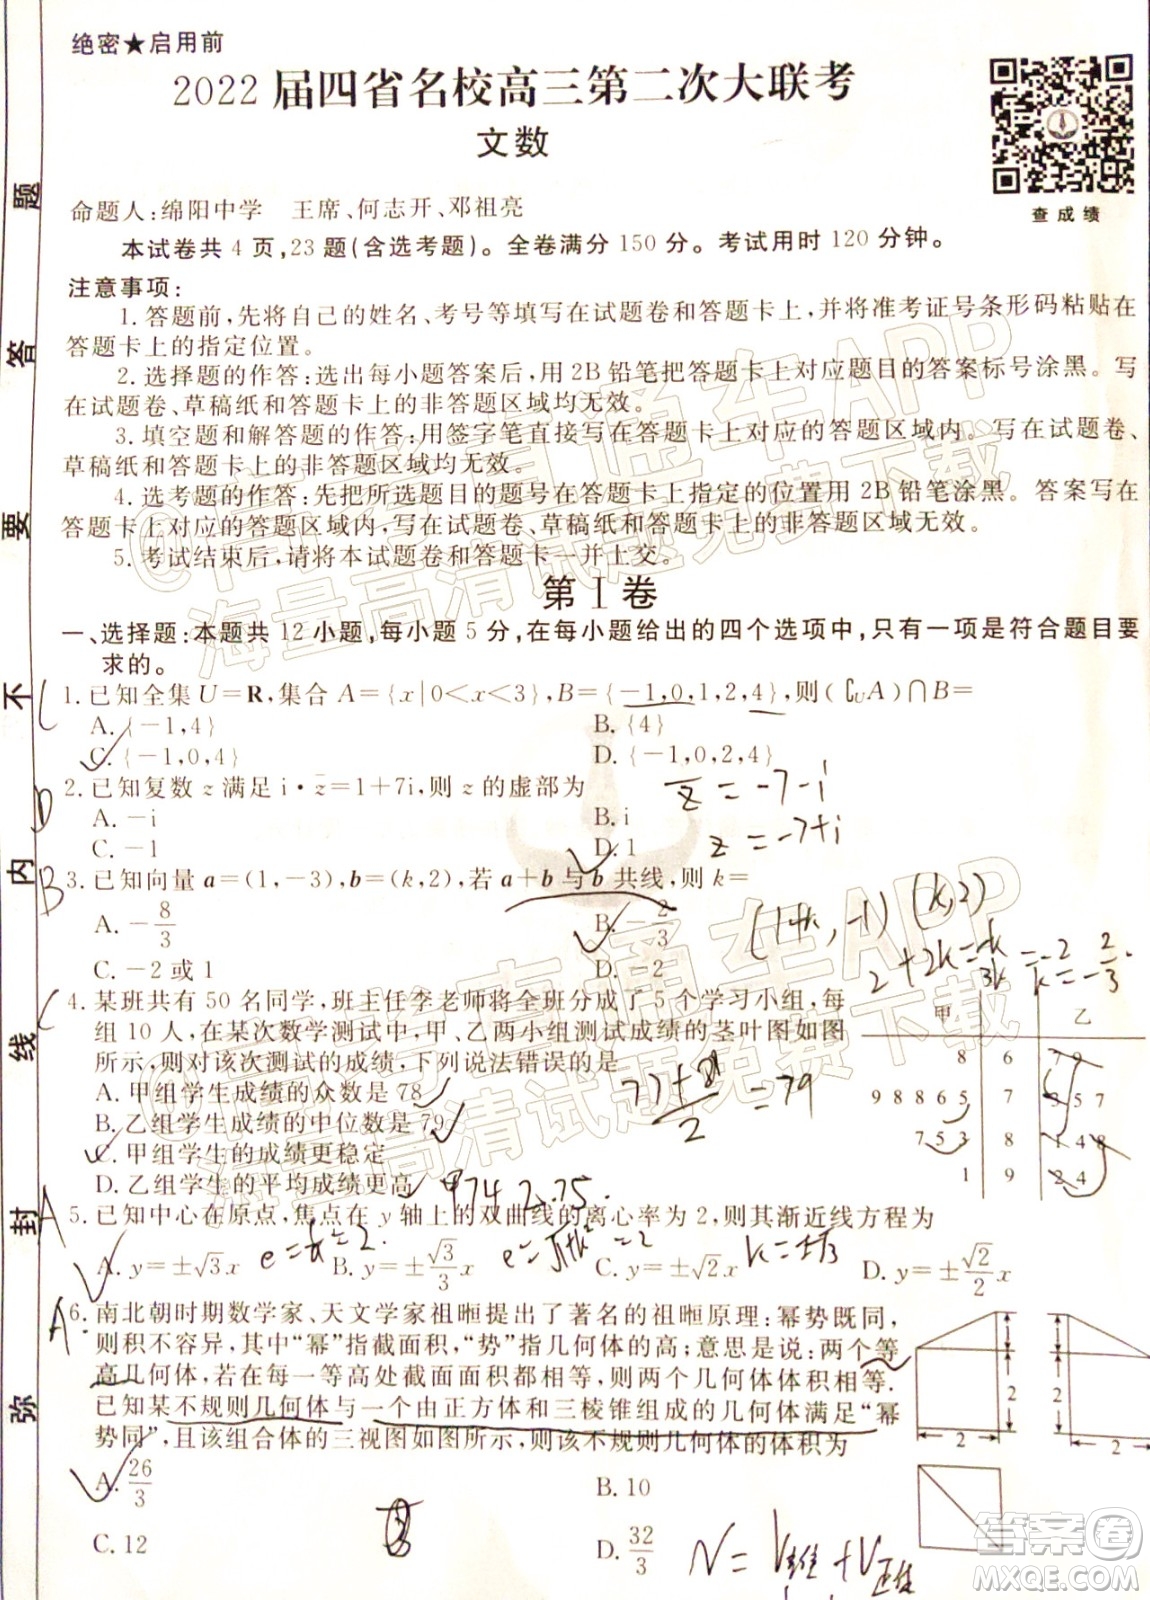 绝密★启用前
2022届四省名校高三第二次大联考
文数
查成绩
命题人:绵阳中学 王席、何志开、邓祖亮
本试卷共4页,23题(含选考题)。全卷满分150分。考试用时120分钟。
注意事项:
1.答题前,先将自己的姓名、考号等填写在试题卷和答题卡上,并将准考证号条形码粘贴在
答题卡上的指定位置。
2.选择题的作答:选出每小题答案后,用2B铅笔把答题卡上对应题目的答案标号涂黑。写
在试题卷、草稿纸和答题卡上的非答题区域均无效。
3.填空题和解答题的作答:用签字笔直接写在答题卡上对应的答题区域内。写在试题卷、
草稿纸和答题卡上的非答题区域均无效。
4.选考题的作答:先把所选题目的题号在答题卡上指定的位置用2B铅笔涂黑。答案写在
答题卡上对应的答题区域内,写在试题卷、草稿纸和答题卡上的非答题区域无效。
5.考试结束后,请将本试题卷和答题卡一并上交。
第Ⅰ卷
一、选择题:本题共12小题,每小题5分,在每小题给出的四个选项中,只有一项是符合题目要
求的。
1.已知全集U=R,集合A={x|0<x<3},B={-1,0,1,2,4},则(∁UA)∩B=
A.{-1,4} B.{4}
C.{-1,0,4} D.{-1,0,1,4}
2.已知复数z满足i·z̄=1+7i,则z的虚部为
A.-i B.i
C.-1 D.1
z̄=-7-i
z=-7+i
3.已知向量a=(1,-3),b=(k,2),若a+b与b共线,则k=
A.-8/3 B.-2/3
C.-2或1 D.-2
(1+k,-1) (k,2)
2+2k=-k
3k=-2 k=-2/3.
4.某班共有50名同学,班主任李老师将全班分成了5个学习小组,每
组10人,在某次数学测试中,甲、乙两小组测试成绩的茎叶图如图
所示,则对该次测试的成绩,下列说法错误的是
A.甲组学生成绩的众数是78
B.乙组学生成绩的中位数是79
C.甲组学生的成绩更稳定
D.乙组学生的平均成绩更高
甲 乙
8 6 7 9
9 8 8 6 5 7 5 5 7
7 5 3 8 1 4 8
1 9 2 4
5.已知中心在原点,焦点在y轴上的双曲线的离心率为2,则其渐近线方程为
A.y=±√3x B.y=±√3/3x C.y=±√2x D.y=±√2/2x
6.南北朝时期数学家、天文学家祖暅提出了著名的祖暅原理:幂势既同,
则积不容异,其中“幂”指截面积,“势”指几何体的高;意思是说:两个等
高几何体,若在每一等高处的截面面积都相等,则两个几何体体积相等.
已知某不规则几何体与一个由正方体和三棱锥组成的几何体满足“幂
势同”,且该组合体的三视图如图所示,则该不规则几何体的体积为
A.26/3 B.10
C.12 D.32/3
1 2 2
1 2 2
弥 封 线 内 不 要 答 题
@高考直通车APP
海量高清试题免费下载
@高考直通车APP
海量高清试题免费下载
答案圈
MXQE.COM